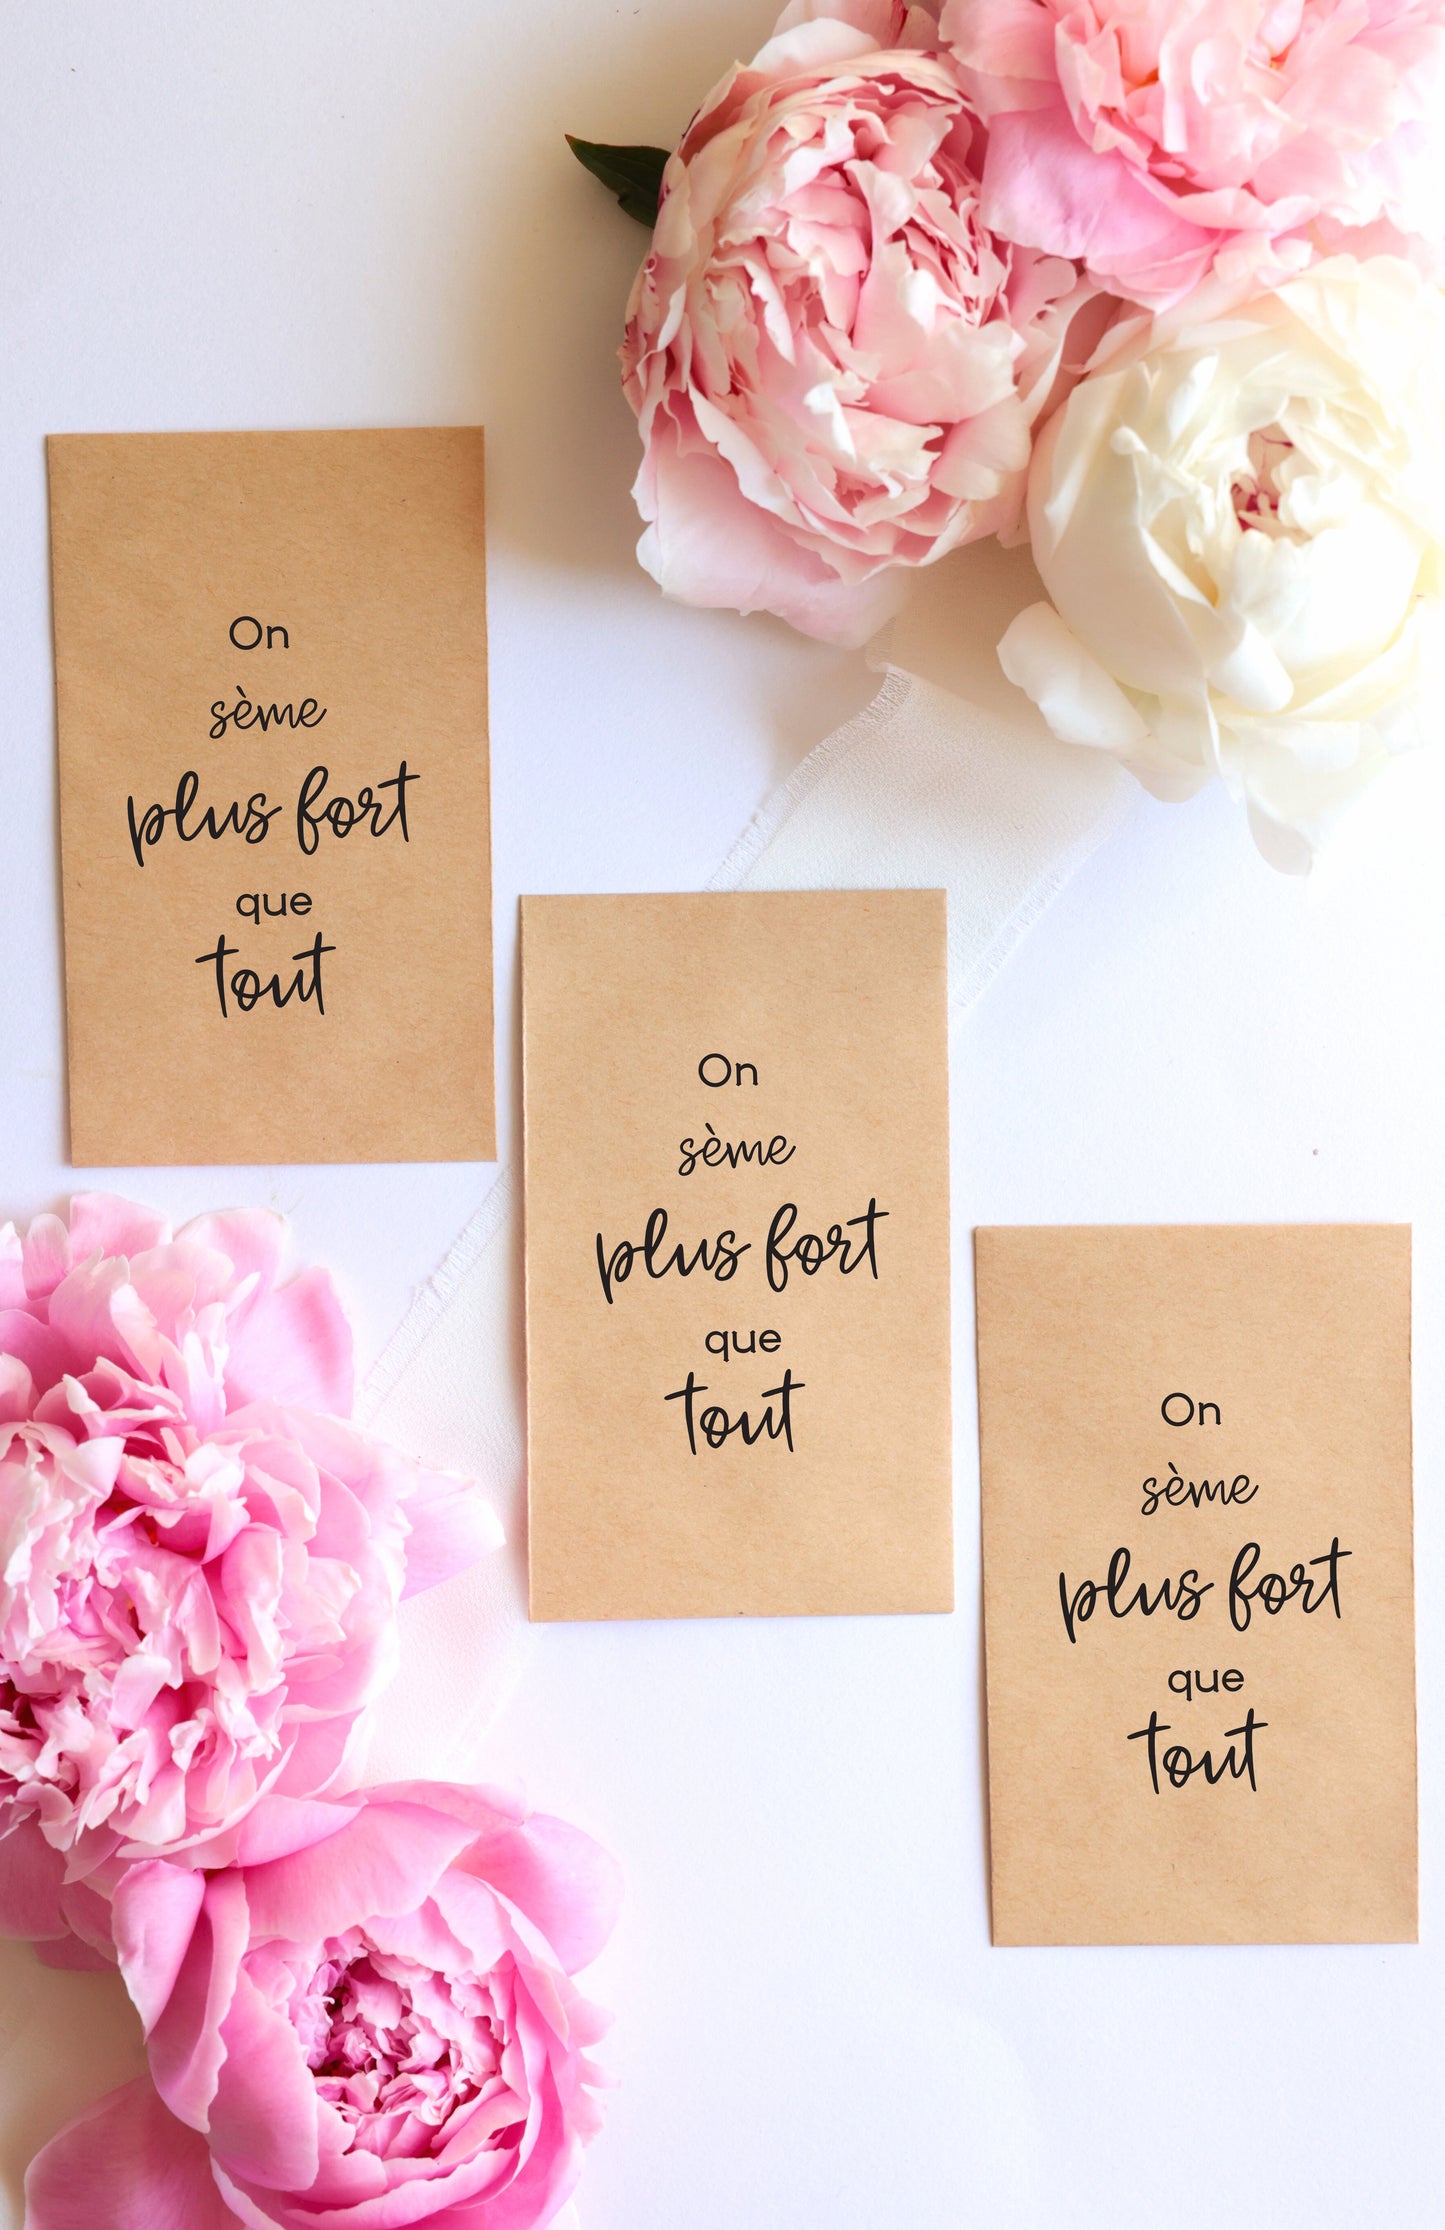 On
sème
plus fort
que
tout
On
sème
plus fort
que
tout
On
sème
plus fort
que
tout